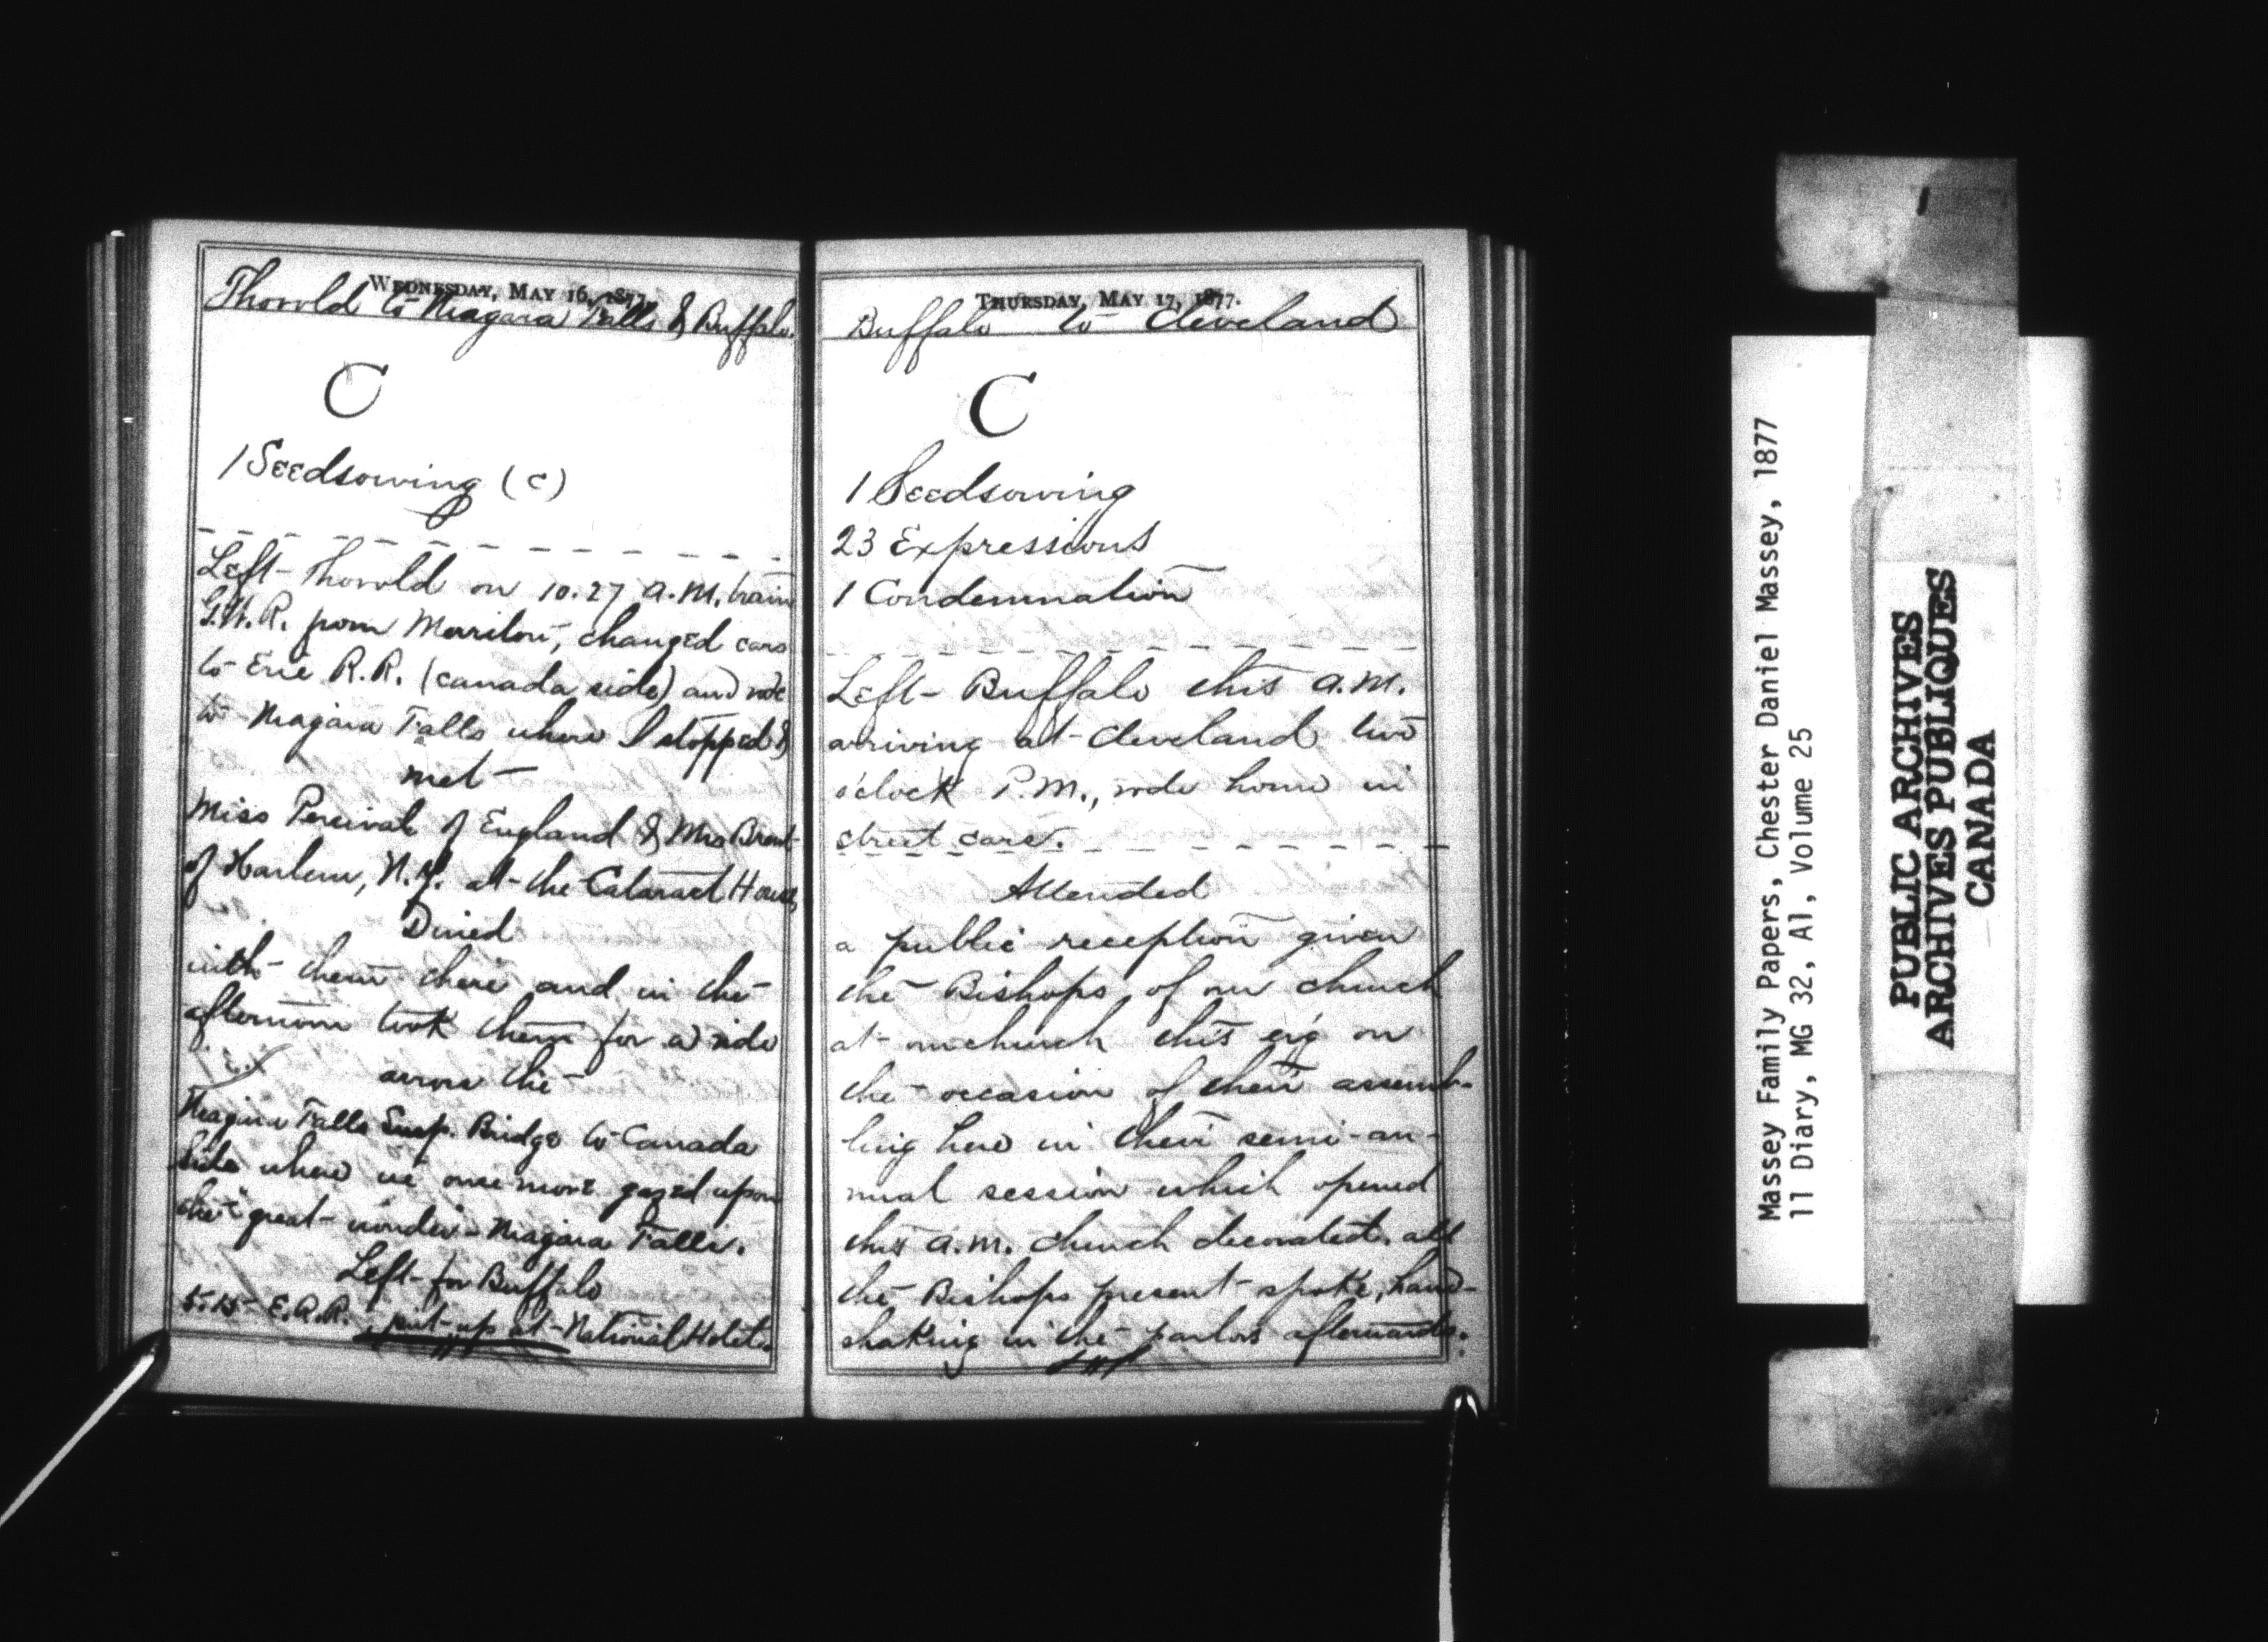 WEDNESDAY, MAY 16, 1877.
Thorold to Niagara Falls & Buffalo.
C
1 Seedsowing (c)
Left Thorold on 10.27 a.m. train
G.W.R. from Merriton, changed cars
to Erie R.R. (Canada side) and rode
to Niagara Falls where I stopped &
met
Miss Percival of England & Mrs Brent
of Harlem, N.Y. at the Cataract House,
Dined
with them there and in the
afternoon took them for a ride
across the
Niagara Falls Susp. Bridge to Canada
side where we once more gazed upon
the "great wonder - Niagara Falls.
Left for Buffalo
5.15 E.R.R. put up at National Hotel.
THURSDAY, MAY 17, 1877.
Buffalo to Cleveland
C
1 Seedsowing
23 Expressions
1 Condemnation
Left Buffalo this a.m.
arriving at Cleveland two
o'clock P.M., rode home in
street cars.
Attended
a public reception given
the Bishops of our church
at our church this ev'g on
the occasion of their assemb-
ling here in their semi-an-
nual session which opened
this a.m. church decorated. all
the Bishops present spoke, hand-
shaking in the parlors afterwards.
Massey Family Papers, Chester Daniel Massey, 1877
11 Diary, MG 32, A1, Volume 25
PUBLIC ARCHIVES
ARCHIVES PUBLIQUES
CANADA